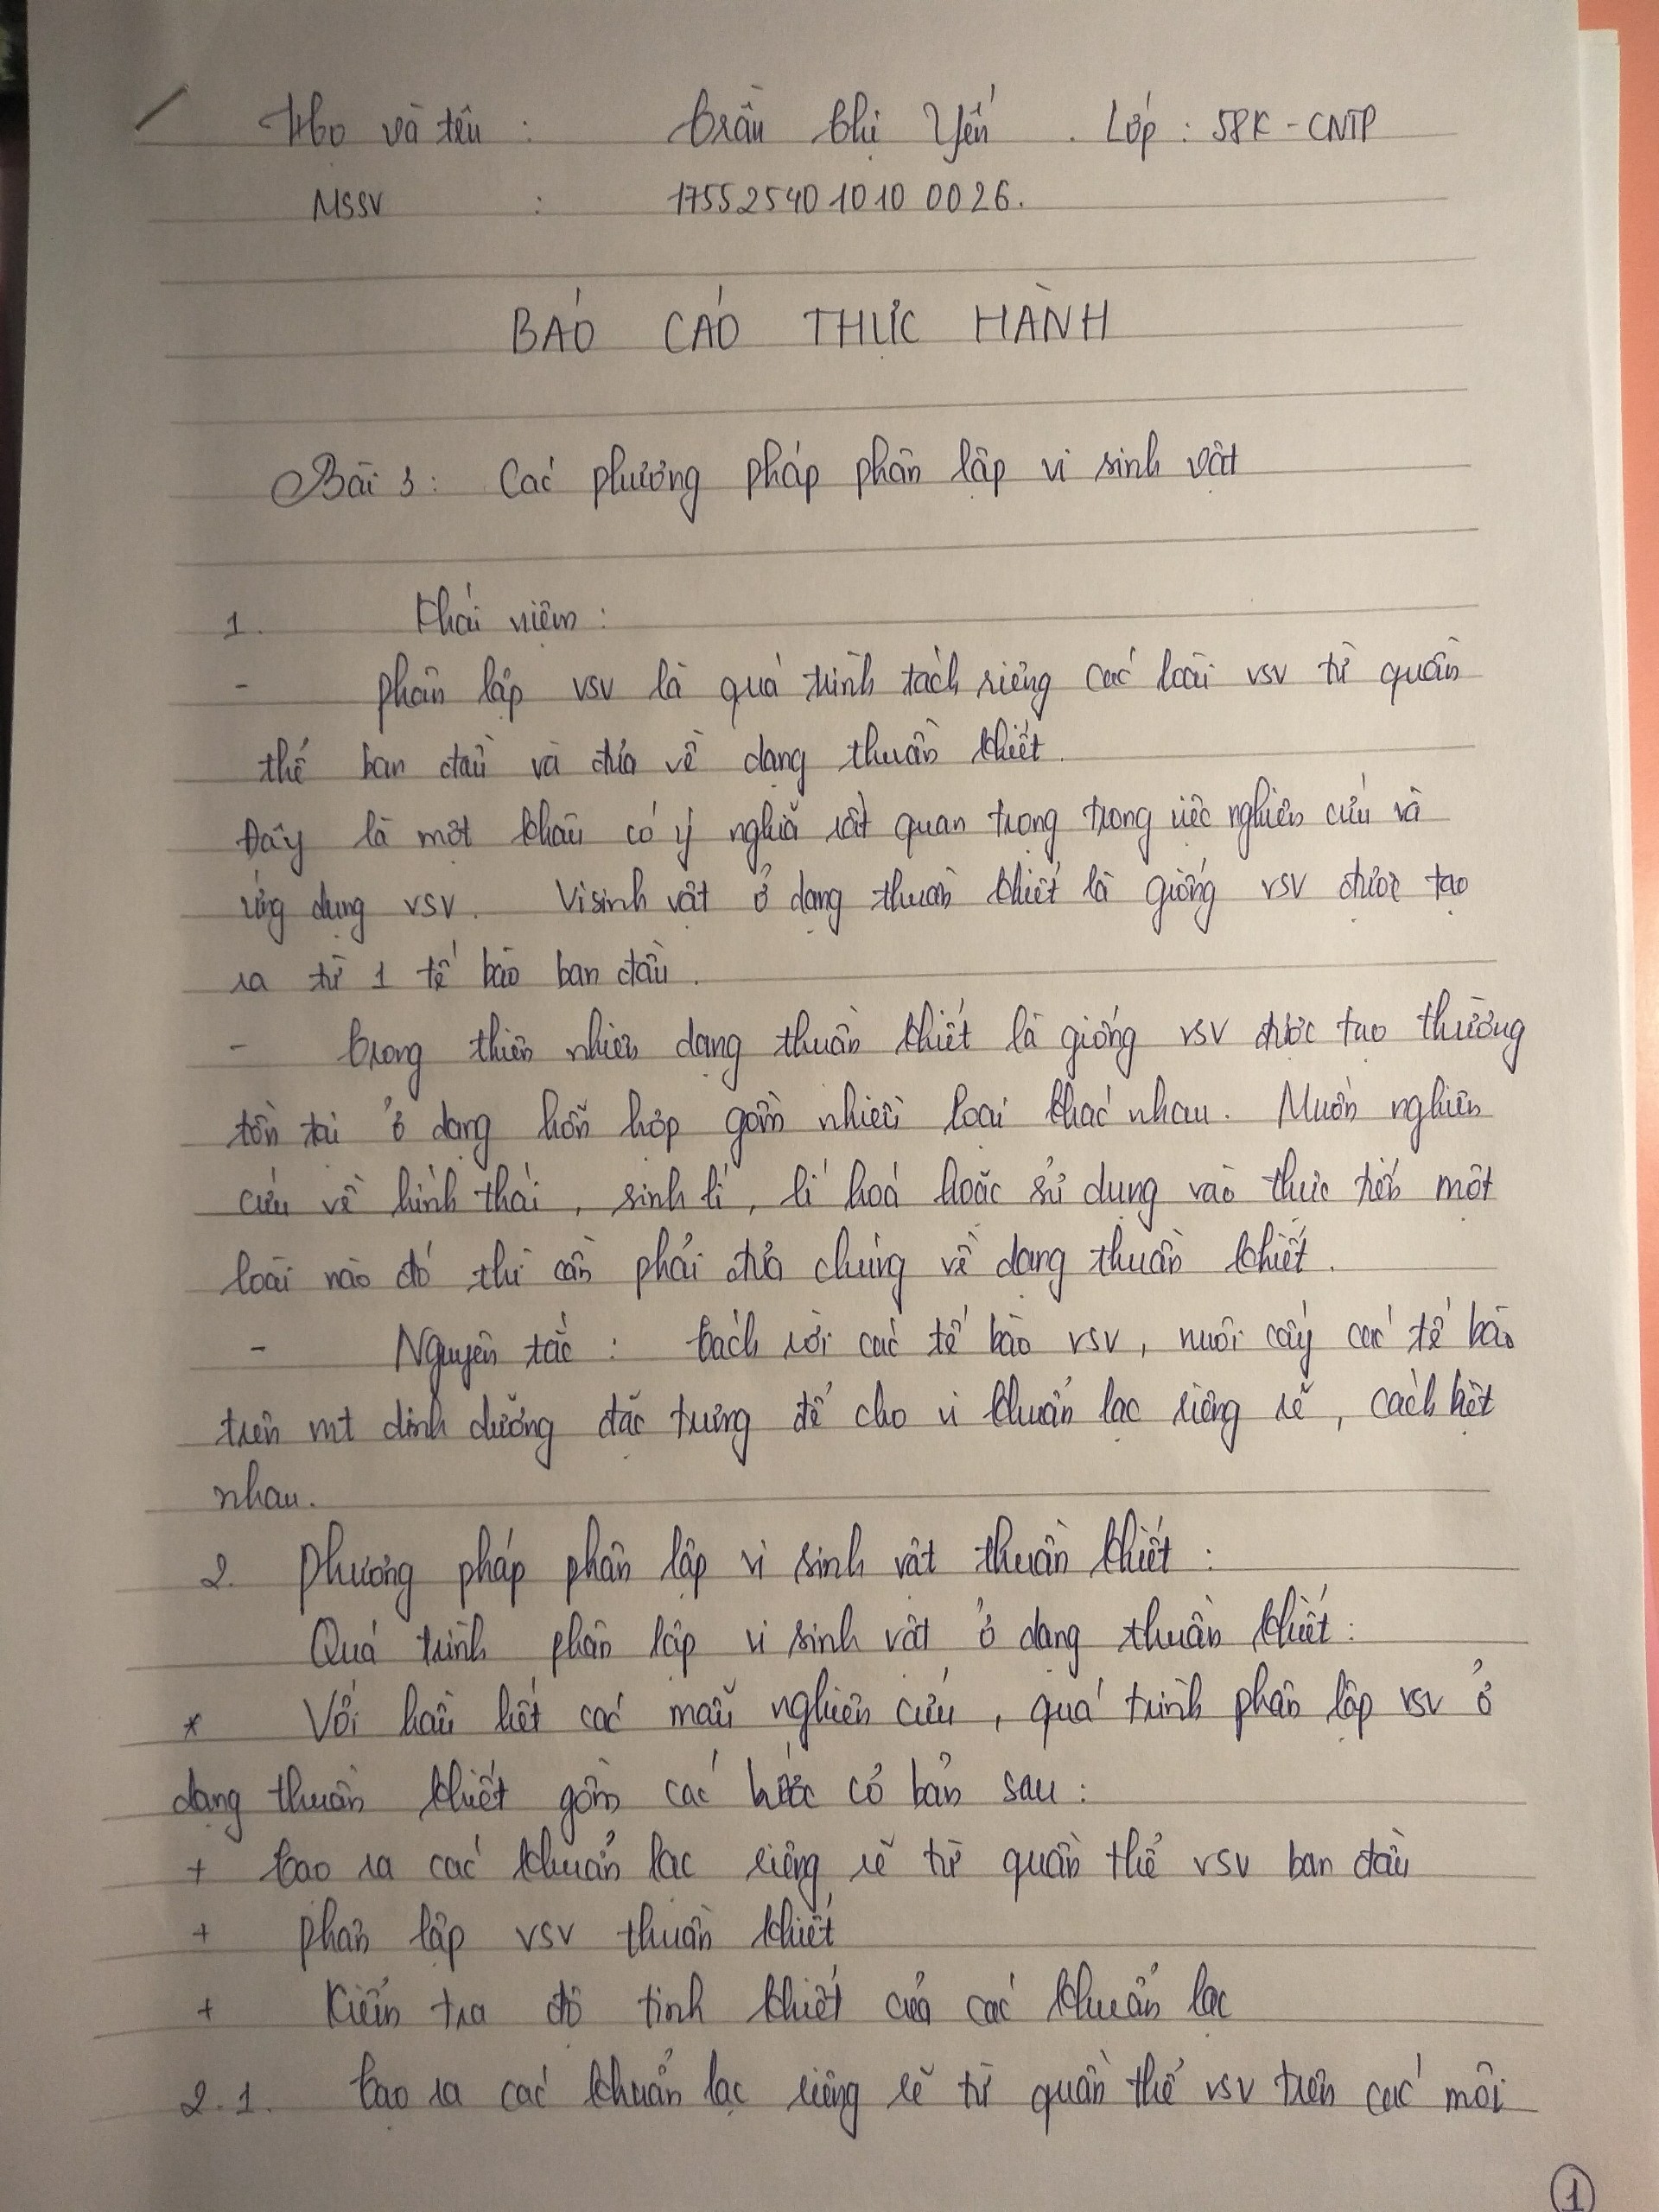 Họ và tên : Trần Thị Yến . Lớp : 58K - CNTP
MSSV : 17552540 1010 0026.
BÁO CÁO THỰC HÀNH
Bài 3 : Các phương pháp phân lập vi sinh vật
1. Khái niệm :
- Phân lập vsv là quá trình tách riêng các loài vsv từ quần
thể ban đầu và đưa về dạng thuần khiết.
Đây là một khâu có ý nghĩa rất quan trọng trong việc nghiên cứu và
ứng dụng vsv. Vi sinh vật ở dạng thuần khiết là giống vsv được tạo
ra từ 1 tế bào ban đầu.
- Trong thiên nhiên dạng thuần khiết là giống vsv được tạo thường
tồn tại ở dạng hỗn hợp gồm nhiều loại khác nhau. Muốn nghiên
cứu về hình thái, sinh lí, lí hoá hoặc sử dụng vào thực tiến một
loài nào đó thì cần phải đưa chúng về dạng thuần khiết.
- Nguyên tắc : Tách rời các tế bào vsv, nuôi cấy các tế bào
trên mt dinh dưỡng đặc trưng để cho vi khuẩn lạc riêng rẽ, cách biệt
nhau.
2. Phương pháp phân lập vi sinh vật thuần khiết :
Quá trình phân lập vi sinh vật ở dạng thuần khiết :
* Với hầu hết các mẫu nghiên cứu, quá trình phân lập vsv ở
dạng thuần khiết gồm các bước cơ bản sau :
+ Tạo ra các khuẩn lạc riêng rẽ từ quần thể vsv ban đầu
+ Phân lập vsv thuần khiết
+ Kiểm tra độ tinh khiết của các khuẩn lạc
2.1. Tạo ra các khuẩn lạc riêng rẽ từ quần thể vsv trên các môi
1